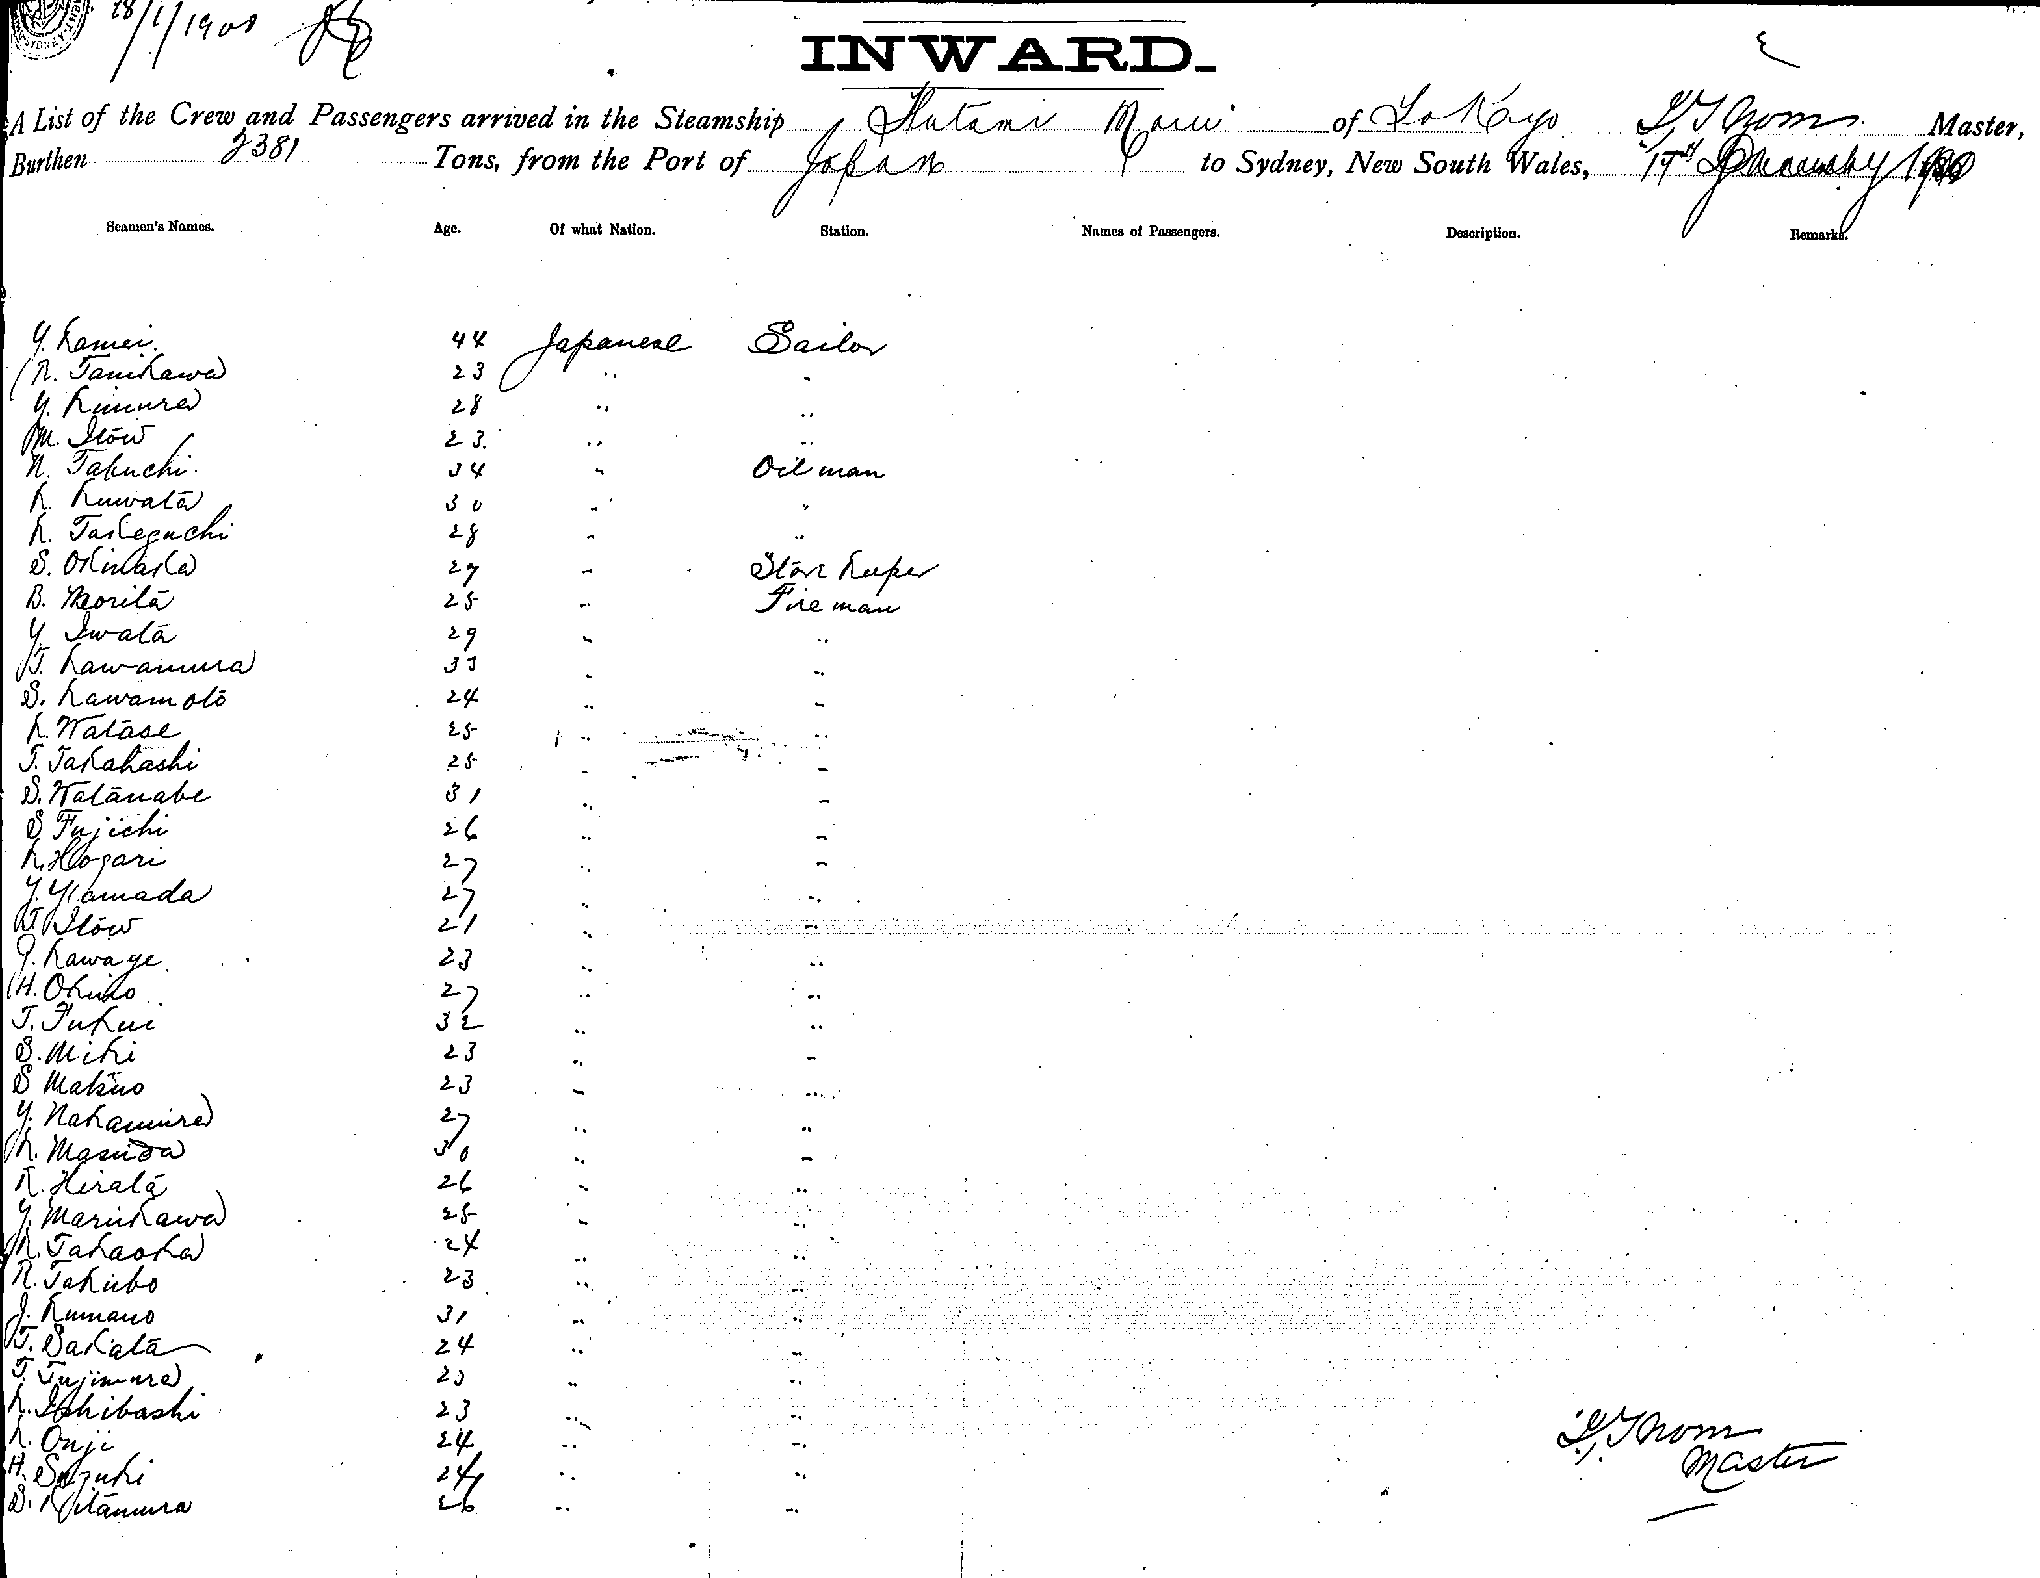 28/1/1901
INWARD.
A List of the Crew and Passengers arrived in the Steamship Futami Maru of Tokyo Thom Master,
Burthen 2381 Tons, from the Port of Japan to Sydney, New South Wales,
Seamen's Names. Age. Of what Nation. Station. Names of Passengers. Description. Remarks.
Y. Kamei. 44 Japanese Sailor
N. Tanikawa 23 " "
Y. Kimura 28 " "
M. Itow 23. " "
N. Takuchi. 34 " Oilman
K. Kuwata 30 " "
K. Takeguchi 28 " "
S. Okinaka 29 " Store Keeper
B. Morita 25 " Fireman
Y. Iwata 29 " "
T. Kawamura 33 " "
S. Kawamoto 24 " "
K. Watase 25 " "
T. Takahashi 25 " "
S. Watanabe 31 " "
S Fujichi 26 " "
K. Hogari 27 " "
Y. Yamada 27 " "
T. Itow 21 " "
Kawage 23 " "
H. Okino 27 " "
T. Fukui 32 " "
S. Miki 23 " "
S Makino 23 " "
Y. Nakamura 27 " "
K. Masuda 30 " "
K. Hirata 26 " "
Y. Marukawa 25 " "
K. Takaoka 24 " "
R. Takubo 23 " "
J. Kumano 31 " "
T. Sakata 24 " "
T. Fujimura 23 " "
K. Ishibashi 23 " "
K. Onji 24 " "
H. Suzuki 24 " "
S. Kitamura 26 " "
Thom
Master